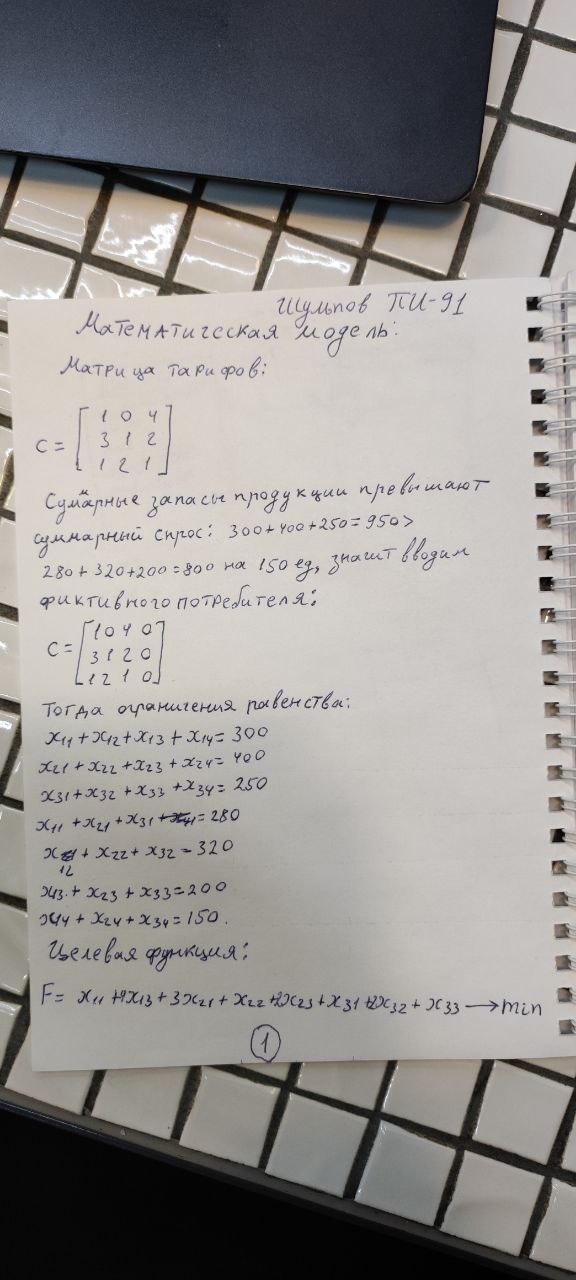 Шульпов ПИ-91
Математическая модель:
Матрица тарифов:
C = [1 0 4
3 1 2
1 2 1]
Суммарные запасы продукции превышают
суммарный спрос: 300+400+250=950>
280+320+200=800 на 150 ед, значит вводим
фиктивного потребителя:
C = [1 0 4 0
3 1 2 0
1 2 1 0]
Тогда ограничения равенства:
x11 + x12 + x13 + x14 = 300
x21 + x22 + x23 + x24 = 400
x31 + x32 + x33 + x34 = 250
x11 + x21 + x31 = 280
x12 + x22 + x32 = 320
x13 + x23 + x33 = 200
x14 + x24 + x34 = 150.
Целевая функция:
F = x11 + 4x13 + 3x21 + x22 + 2x23 + x31 + 2x32 + x33 → min
1